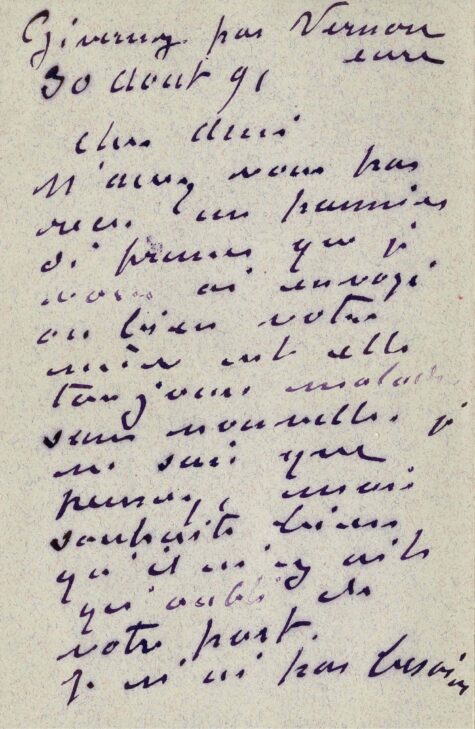 Giverny par Vernon
eure
30 aout 91
cher ami
N'avez vous pas
recu un pannier
de prunes que je
vous ai envoyé
ou bien votre
mère est elle
toujours malade
sans nouvelles je
ne sais que
penser, mais
souhaite bien
qu'il n'y ait
qu'oubli de
votre part.
Je n'ai pas besoin